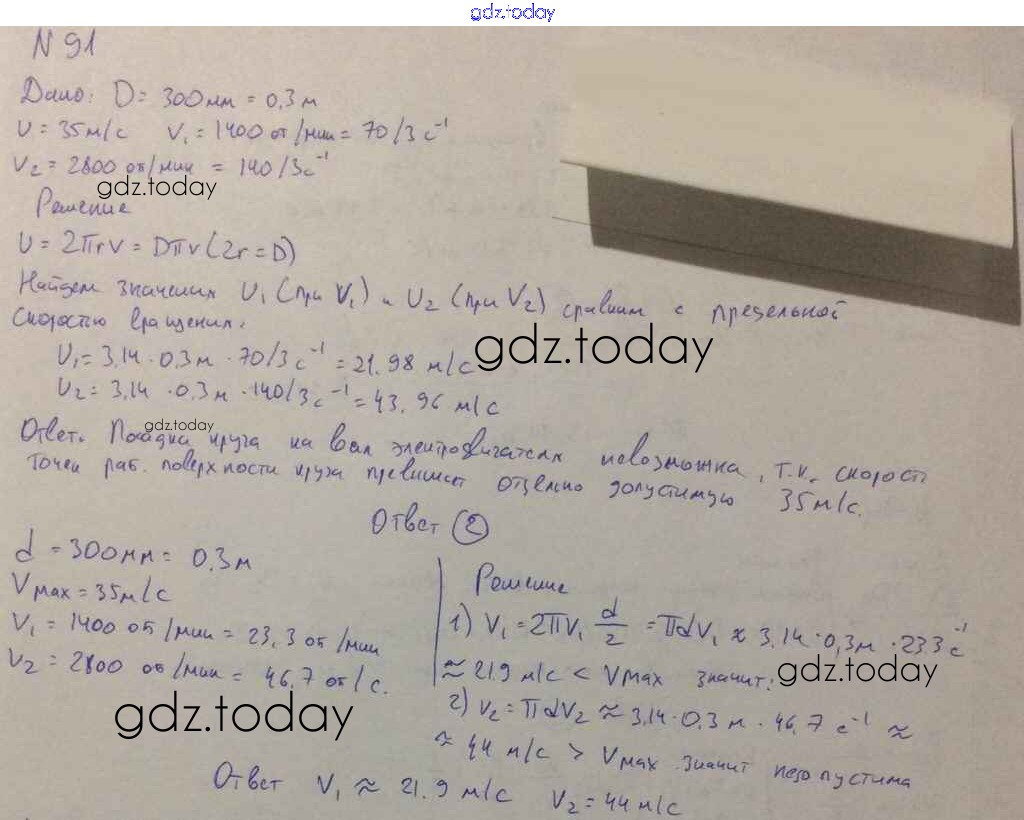 gdz.today
N 91
Дано: D = 300 мм = 0,3 м
υ = 35 м/с V₁ = 1400 об/мин = 70/3 с⁻¹
V₂ = 2800 об/мин = 140/3 с⁻¹
gdz.today
Решение
υ = 2πrν = Dπν (2r = D)
Найдем значения υ₁ (при V₁) и υ₂ (при V₂) сравним с предельной
скоростью вращения.
υ₁ = 3,14 · 0,3 м · 70/3 с⁻¹ = 21,98 м/с
gdz.today
υ₂ = 3,14 · 0,3 м · 140/3 с⁻¹ = 43,96 м/с
gdz.today
Ответ. Посадка круга на вал электродвигателя невозможна, т.к. скорость
точек раб. поверхности круга превышает отдельно допустимую 35 м/с.
Ответ (2)
d = 300 мм = 0,3 м
Vmax = 35 м/с
V₁ = 1400 об/мин = 23,3 об/мин
V₂ = 2800 об/мин = 46,7 об/с.
Решение
1) V₁ = 2πV₁ d/2 = πdV₁ ≈ 3,14 · 0,3 м · 23,3 с⁻¹
≈ 21,9 м/с < Vmax значит:
gdz.today
2) V₂ = πdV₂ ≈ 3,14 · 0,3 м · 46,7 с⁻¹ ≈
≈ 44 м/с > Vmax значит недопустима
gdz.today
Ответ V₁ ≈ 21,9 м/с V₂ = 44 м/с